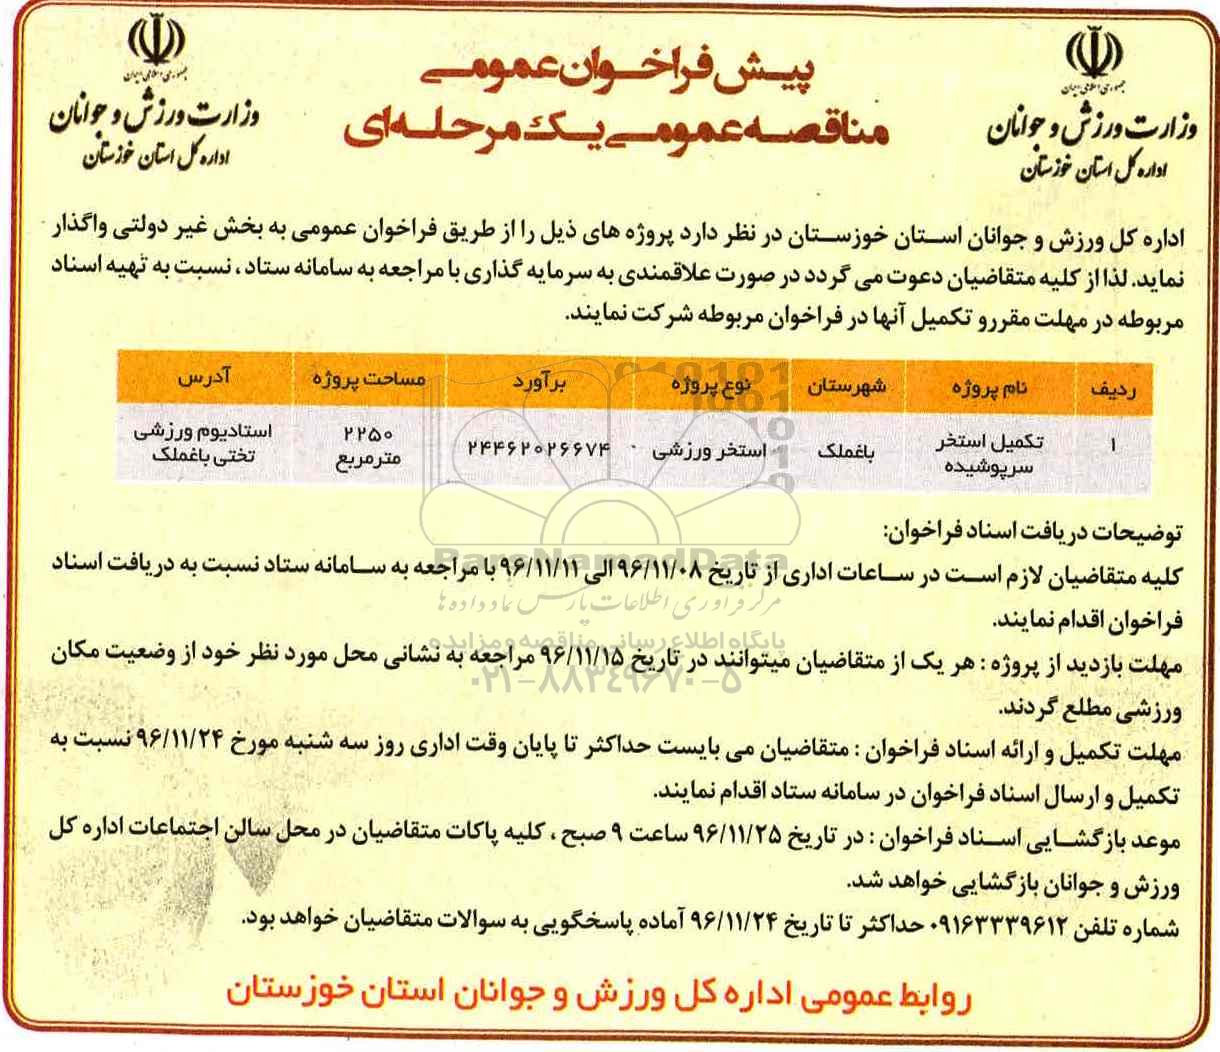 جمهوری اسلامی ایران
وزارت ورزش و جوانان
اداره کل استان خوزستان
پیش فراخوان عمومی
مناقصه عمومی یک مرحله‌ای
جمهوری اسلامی ایران
وزارت ورزش و جوانان
اداره کل استان خوزستان
اداره کل ورزش و جوانان استان خوزستان در نظر دارد پروژه های ذیل را از طریق فراخوان عمومی به بخش غیر دولتی واگذار
نماید. لذا از کلیه متقاضیان دعوت می گردد در صورت علاقمندی به سرمایه گذاری با مراجعه به سامانه ستاد ، نسبت به تهیه اسناد
مربوطه در مهلت مقرر و تکمیل آنها در فراخوان مربوطه شرکت نمایند.
ردیف نام پروژه شهرستان نوع پروژه برآورد مساحت پروژه آدرس
۱ تکمیل استخر سرپوشیده باغملک استخر ورزشی ۲۴۴۶۲۰۲۶۶۷۴ ۲۲۵۰ مترمربع استادیوم ورزشی تختی باغملک
توضیحات دریافت اسناد فراخوان:
ParsNamadData
کلیه متقاضیان لازم است در ساعات اداری از تاریخ ۹۶/۱۱/۰۸ الی ۹۶/۱۱/۱۱ با مراجعه به سامانه ستاد نسبت به دریافت اسناد
مرکز فرآوری اطلاعات پارس نماد داده‌ها
فراخوان اقدام نمایند.
پایگاه اطلاع رسانی مناقصه و مزایده
مهلت بازدید از پروژه : هر یک از متقاضیان میتوانند در تاریخ ۹۶/۱۱/۱۵ مراجعه به نشانی محل مورد نظر خود از وضعیت مکان
۰۲۱-۸۸۳۴۹۶۷۰-۵
ورزشی مطلع گردند.
مهلت تکمیل و ارائه اسناد فراخوان : متقاضیان می بایست حداکثر تا پایان وقت اداری روز سه شنبه مورخ ۹۶/۱۱/۲۴ نسبت به
تکمیل و ارسال اسناد فراخوان در سامانه ستاد اقدام نمایند.
موعد بازگشایی اسناد فراخوان : در تاریخ ۹۶/۱۱/۲۵ ساعت ۹ صبح ، کلیه پاکات متقاضیان در محل سالن اجتماعات اداره کل
ورزش و جوانان بازگشایی خواهد شد.
شماره تلفن ۰۹۱۶۳۳۳۹۶۱۲ حداکثر تا تاریخ ۹۶/۱۱/۲۴ آماده پاسخگویی به سوالات متقاضیان خواهد بود.
روابط عمومی اداره کل ورزش و جوانان استان خوزستان